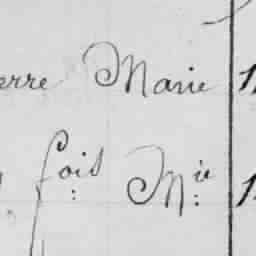 erre Marie 1
fois Mie 1